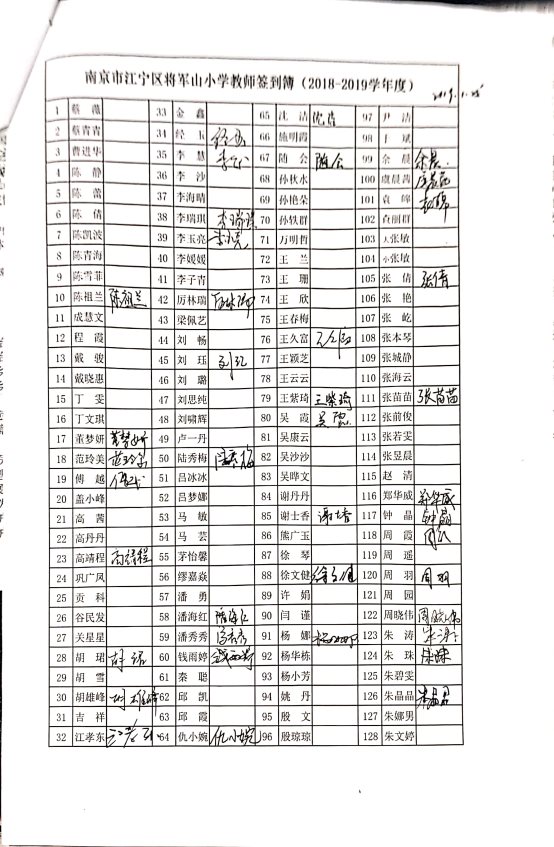 南京市江宁区将军山小学教师签到簿（2018-2019学年度）
1 蔡薇 33 金鑫 65 沈洁 沈洁 97 尹洁
2 蔡青青 34 经玉 经玉 66 施明霞 98 于斌
3 曹进华 35 李慧 李慧 67 随会 随会 99 余晨 余晨
4 陈静 36 李沙 68 孙秋水 100 虞晨茜
5 陈蕾 37 李海晴 69 孙艳荣 101 袁锦 袁锦
6 陈倩 38 李瑞琪 李瑞琪 70 孙轶群 102 袁丽群
7 陈凯波 39 李玉亮 71 万明哲 103 大张敏
8 陈青海 40 李媛媛 72 王兰 104 小张敏
9 陈雪菲 41 李子青 73 王珊 105 张倩 张倩
10 陈祖兰 陈祖兰 42 厉林瑞 厉林瑞 74 王欣 106 张艳
11 成慧文 43 梁佩艺 75 王春梅 107 张屹
12 程霞 44 刘畅 76 王久富 王久富 108 张本琴
13 戴骏 45 刘珏 刘珏 77 王颖芝 109 张城静
14 戴晓惠 46 刘璐 78 王云云 110 张海云
15 丁雯 47 刘思纯 79 王紫琦 王紫琦 111 张苗苗 张苗苗
16 丁文琪 48 刘啸辉 80 吴霞 吴霞 112 张前俊
17 董梦妍 董梦妍 49 卢一丹 81 吴康云 113 张若雯
18 范玲美 范玲美 50 陆秀梅 陆秀梅 82 吴沙沙 114 张昱晨
19 傅越 傅越 51 吕冰冰 83 吴晔文 115 赵清
20 盖小峰 52 吕梦娜 84 谢丹丹 116 郑华成 郑华成
21 高茜 53 马敏 85 谢士香 谢士香 117 钟晶 钟晶
22 高丹丹 54 马芸 86 熊广玉 118 周霞 周霞
23 高靖程 高靖程 55 茅怡馨 87 徐琴 119 周遥
24 巩广凤 56 缪嘉焱 88 徐文健 徐文健 120 周羽 周羽
25 贡科 57 潘勇 89 许娟 121 周园
26 谷民发 58 潘海红 潘海红 90 闫谨 122 周晓伟 周晓伟
27 关星星 59 潘秀秀 潘秀秀 91 杨娜 杨娜 123 朱涛 朱涛
28 胡珺 胡珺 60 钱雨婷 钱雨婷 92 杨华栋 124 朱珠 朱珠
29 胡雪 61 秦聪 93 杨小芳 125 朱碧雯
30 胡雄峰 胡雄峰 62 邱凯 94 姚丹 126 朱晶晶 朱晶晶
31 吉祥 63 邱霞 95 殷文 127 朱娜男
32 江孝东 江孝东 64 仇小婉 仇小婉 96 殷琼琼 128 朱文婷